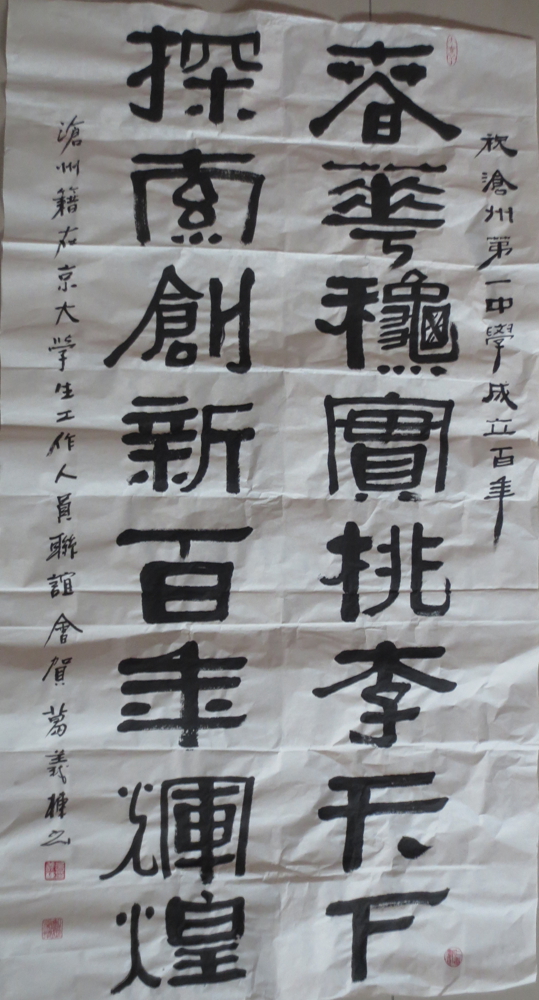 祝滄州第一中學成立百年
春華穐實桃李天下
探索創新百年輝煌
滄州籍在京大學生工作人員聯誼會賀 葛義雄书